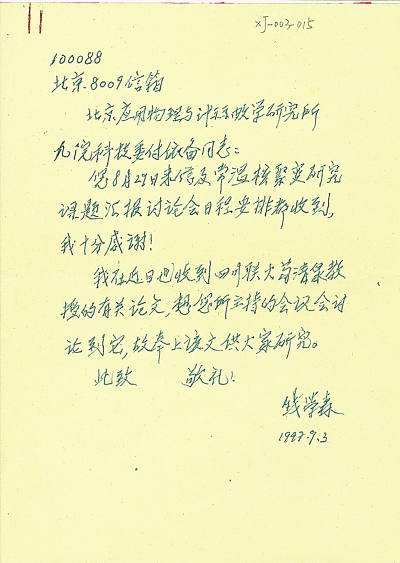 XJ-003-015
100088
北京8009信箱
北京应用物理与计算数学研究所
九院科技委付依备同志:
您8月29日来信及常温核聚变研究
课题汇报讨论会日程安排都收到,
我十分感谢!
我在近日也收到四川联大苟清泉教
授的有关论文,想您所主持的会议会讨
论到它,故奉上该文供大家研究。
此致 敬礼!
钱学森
1997.9.3